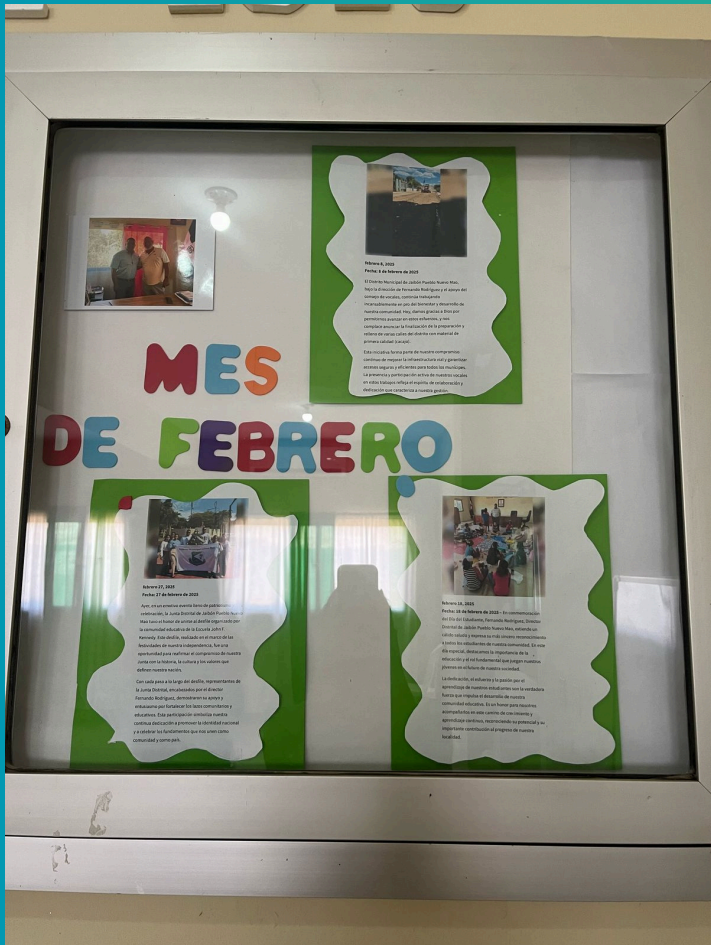 MES
DE FEBRERO
febrero 8, 2025
Fecha: 8 de febrero de 2025
El Distrito Municipal de Jaibón Pueblo Nuevo Mao,
bajo la dirección de Fernando Rodríguez y el apoyo del
consejo de vocales, continúa trabajando
incansablemente en pro del bienestar y desarrollo de
nuestra comunidad. Hoy, damos gracias a Dios por
permitirnos avanzar en estos esfuerzos, y nos
complace anunciar la finalización de la preparación y
relleno de varias calles del distrito con material de
primera calidad
Esta iniciativa forma parte de nuestro compromiso
continuo de mejorar la infraestructura vial y garantizar
accesos seguros y eficientes para todos los munícipes.
La presencia y participación activa de nuestros vocales
en estos trabajos refleja el espíritu de colaboración y
dedicación que caracteriza a nuestra gestión.
febrero 27, 2025
Fecha: 27 de febrero de 2025
Ayer, en un emotivo evento lleno de patriotismo y
celebración, la Junta Distrital de Jaibón Pueblo Nuevo
Mao tuvo el honor de unirse al desfile organizado por
la comunidad educativa de la Escuela John F.
Kennedy. Este desfile, realizado en el marco de las
festividades de nuestra independencia, fue una
oportunidad para reafirmar el compromiso de nuestra
Junta con la historia, la cultura y los valores que
definen nuestra nación.
Con cada paso a lo largo del desfile, representantes de
la Junta Distrital, encabezados por el director
Fernando Rodríguez, demostraron su apoyo y
entusiasmo por fortalecer los lazos comunitarios y
educativos. Esta participación simboliza nuestra
continua dedicación a promover la identidad nacional
y a celebrar los fundamentos que nos unen como
comunidad y como país.
Fecha: 18 de febrero de 2025 – En conmemoración
del Día del Estudiante, Fernando Rodríguez, Director
Distrital de Jaibón Pueblo Nuevo Mao, extiende un
cálido saludo y expresa su más sincero reconocimiento
a todos los estudiantes de nuestra comunidad. En este
día especial, destacamos la importancia de la
educación y el rol fundamental que juegan nuestros
jóvenes en el futuro de nuestra sociedad.
La dedicación, el esfuerzo y la pasión por el
aprendizaje de nuestros estudiantes son la verdadera
fuerza que impulsa el desarrollo de nuestra
comunidad educativa. Es un honor para nosotros
acompañarlos en este camino de crecimiento y
aprendizaje continuo, reconociendo su potencial y su
importante contribución al progreso de nuestra
localidad.